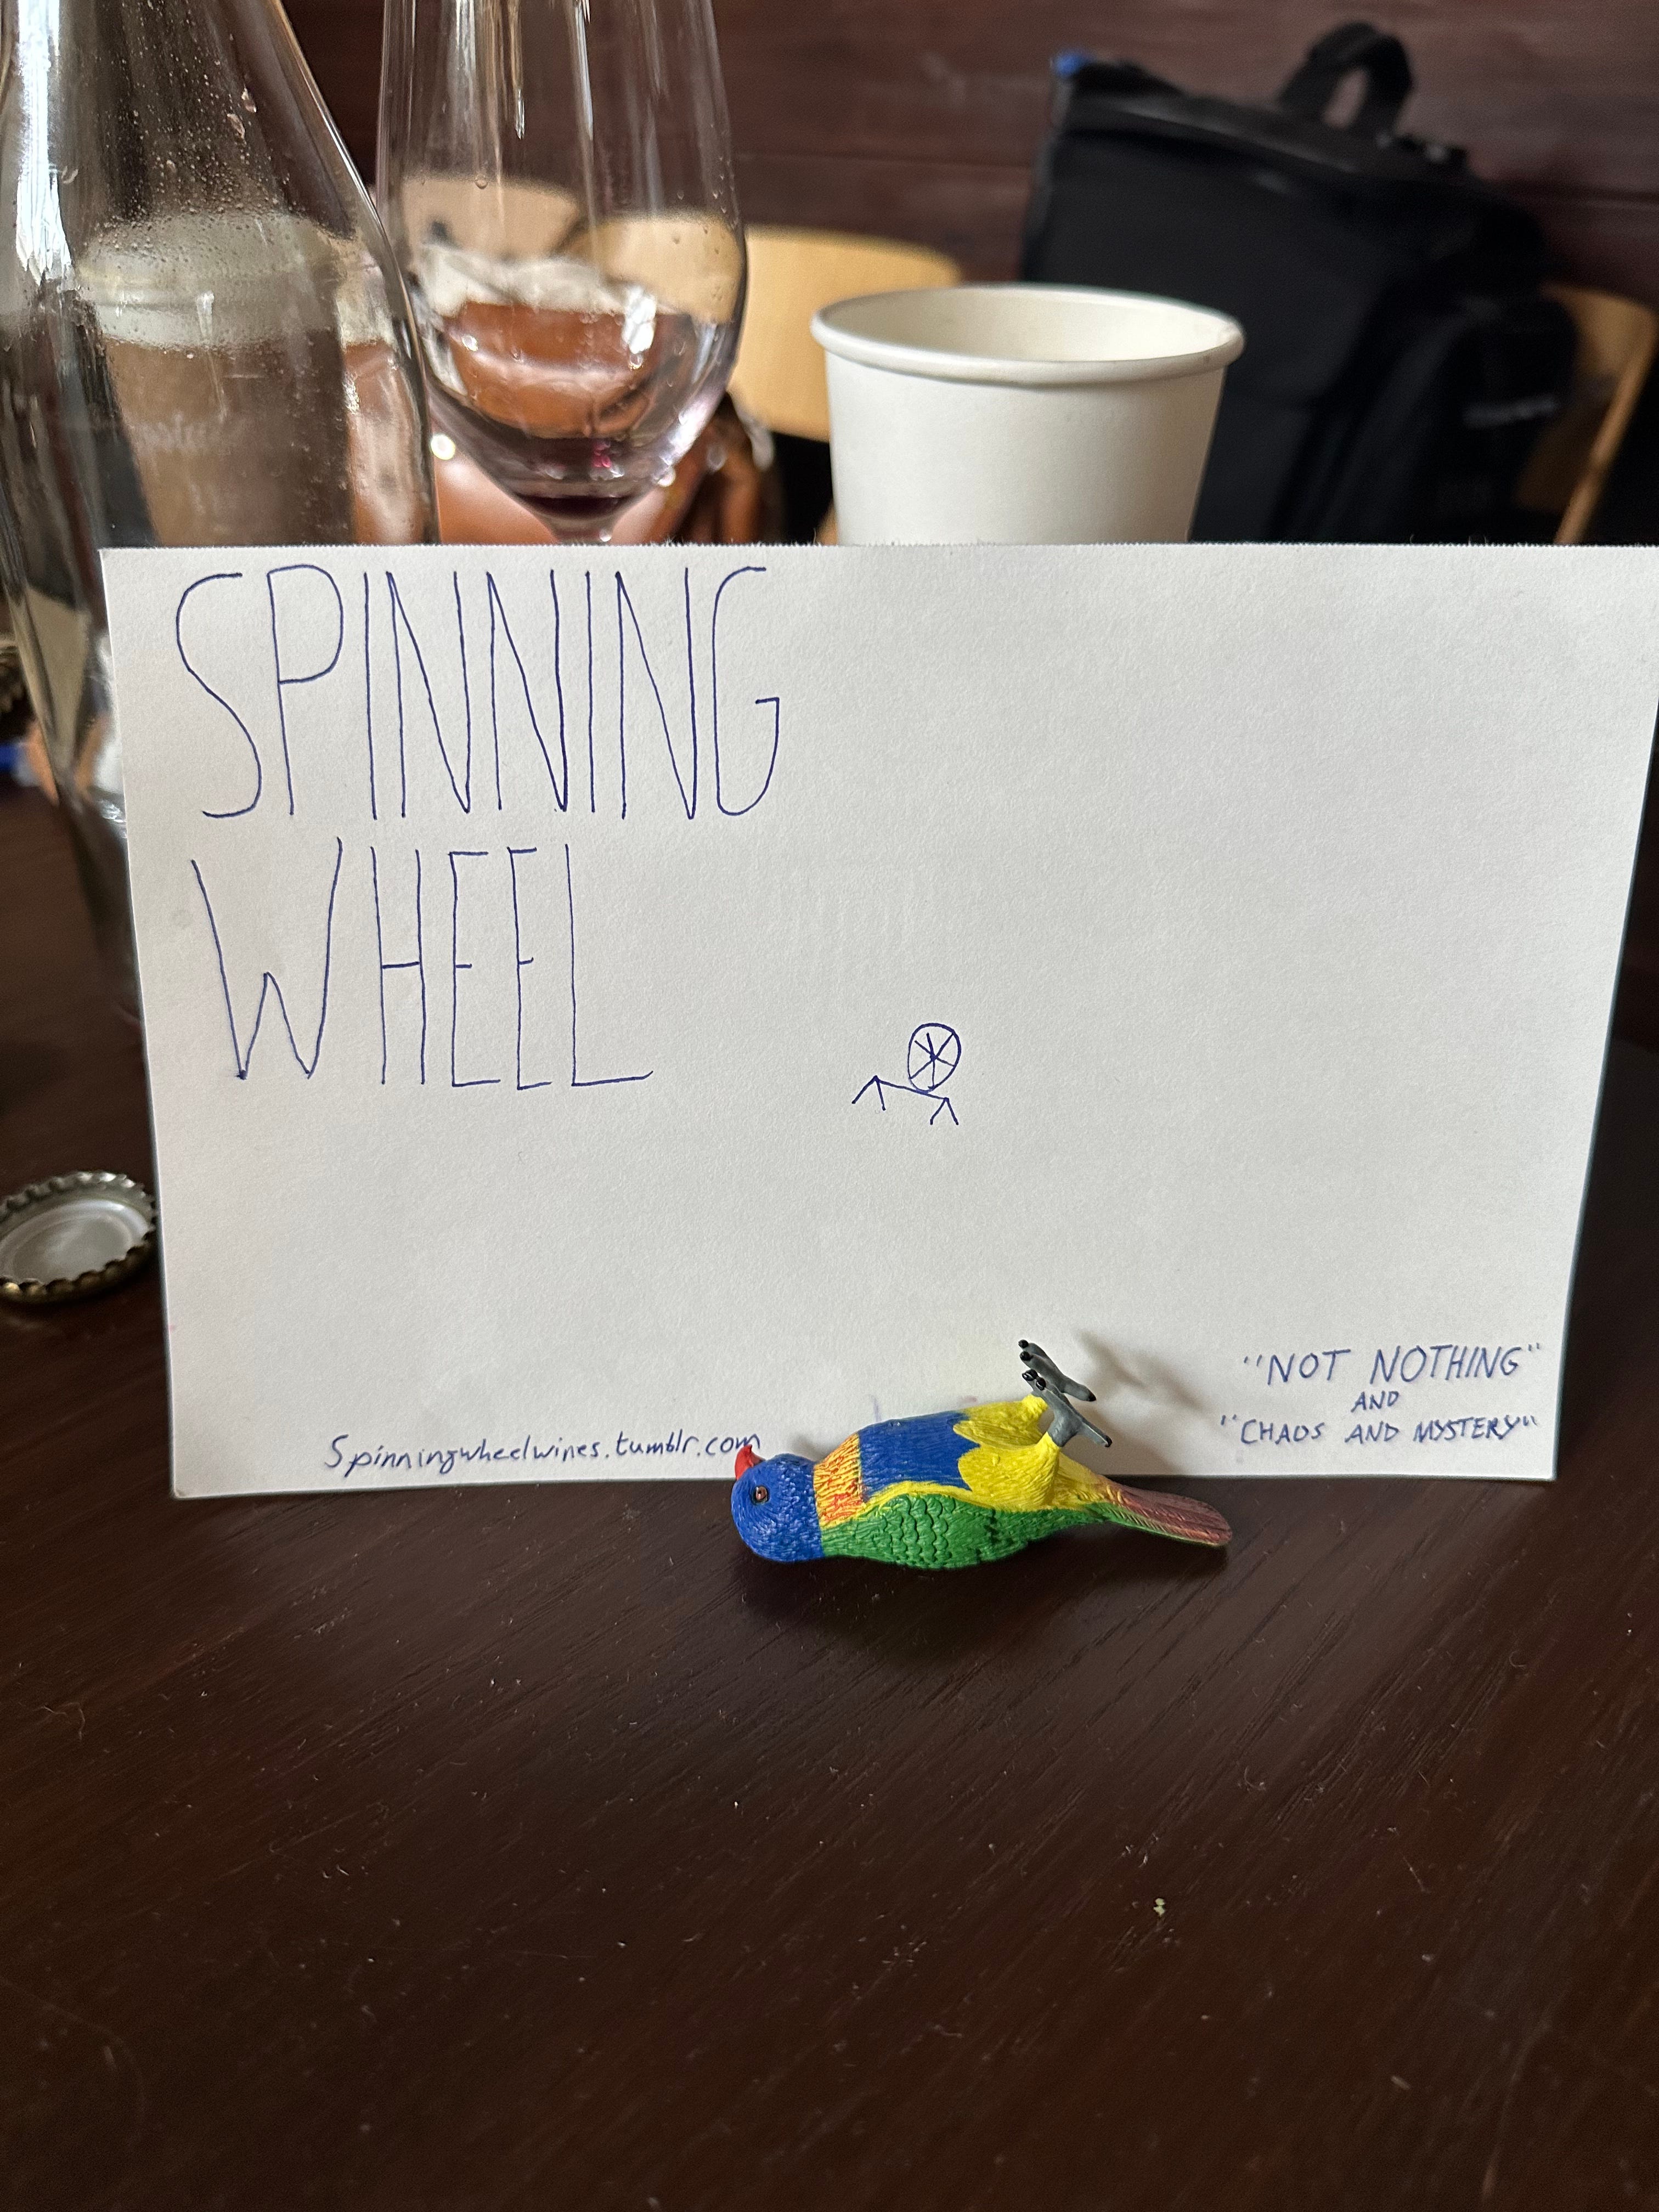 SPINNING
WHEEL
Spinningwheelwines.tumblr.com
"NOT NOTHING"
AND
"CHAOS AND MYSTERY"